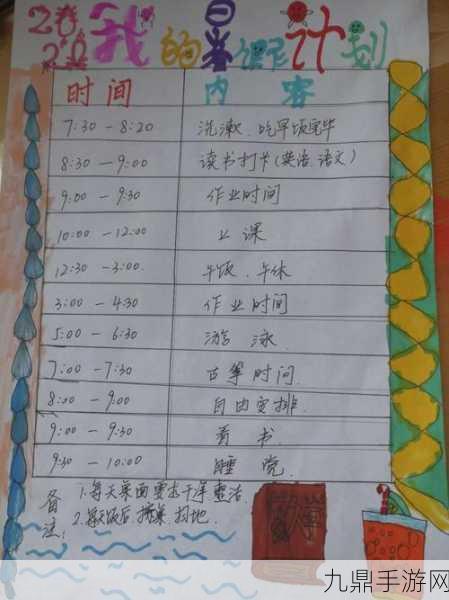 我的暑假计划
时间 内容
7:30－8:20 洗漱、吃早饭完毕
8:30－9:00 读书打卡(英语、语文)
9:00－9:30 作业时间
10:00－12:00 上课
12:30－3:00. 午饭、午休
3:00－4:30 作业时间
5:00－6:30 游泳
7:00－7:30 古筝时间.
8:00－9:00 自由安排.
9:00－9:30 看书
9:30－10:00 睡觉.
备注:
1.每天桌面要求干净整洁
2.每天饭后,擦桌,扫地.
九鼎手游网